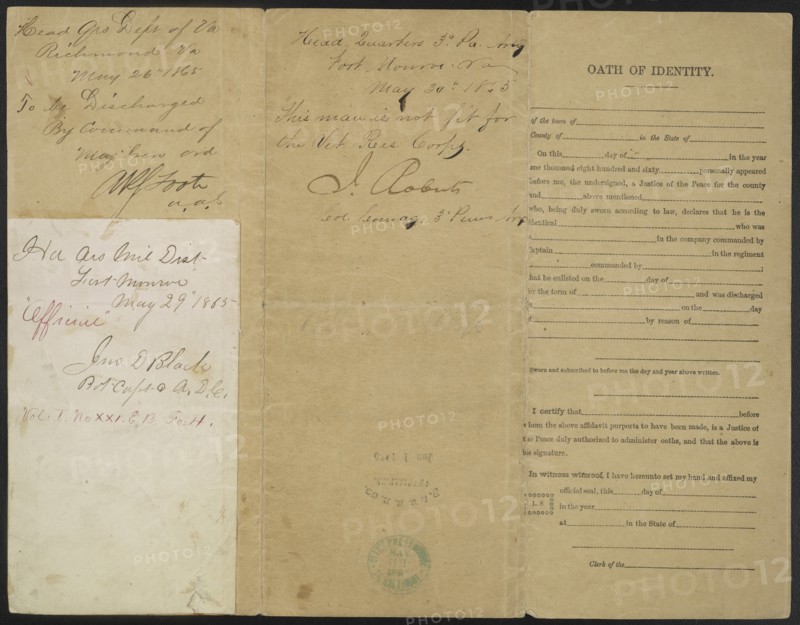 Head Qrs Dept of Va
Richmond Va
May 26" 1865
To be Discharged
By Command of
Maj Gen Ord
Hd Qrs Mil Dist
Fort Monroe
May 29" 1865
"Official"
Jno D Black
Bvt Capt & A.D.C.
Vol. 1. No XXI. E. B. Fort.
Head Quarters 3d Pa. Arty
Fort Monroe Va
May 30th 1865
This man is not fit for
the Vet Res Corps.
J. Roberts
Col Comdg 3d Penn Arty
OATH OF IDENTITY.
of the town of
County of in the State of
On this day of in the year
one thousand eight hundred and sixty personally appeared
before me, the undersigned, a Justice of the Peace for the county
and above mentioned
who, being duly sworn according to law, declares that he is the
identical who was
in the company commanded by
Captain in the regiment
commanded by ;
that he enlisted on the day of
for the term of and was discharged
on the day
by reason of
Sworn and subscribed to before me the day and year above written.
I certify that before
whom the above affidavit purports to have been made, is a Justice of
the Peace duly authorized to administer oaths, and that the above is
his signature.
In witness whereof, I have hereunto set my hand and affixed my
official seal, this day of
L. S. in the year
at in the State of
Clerk of the
PHOTO12